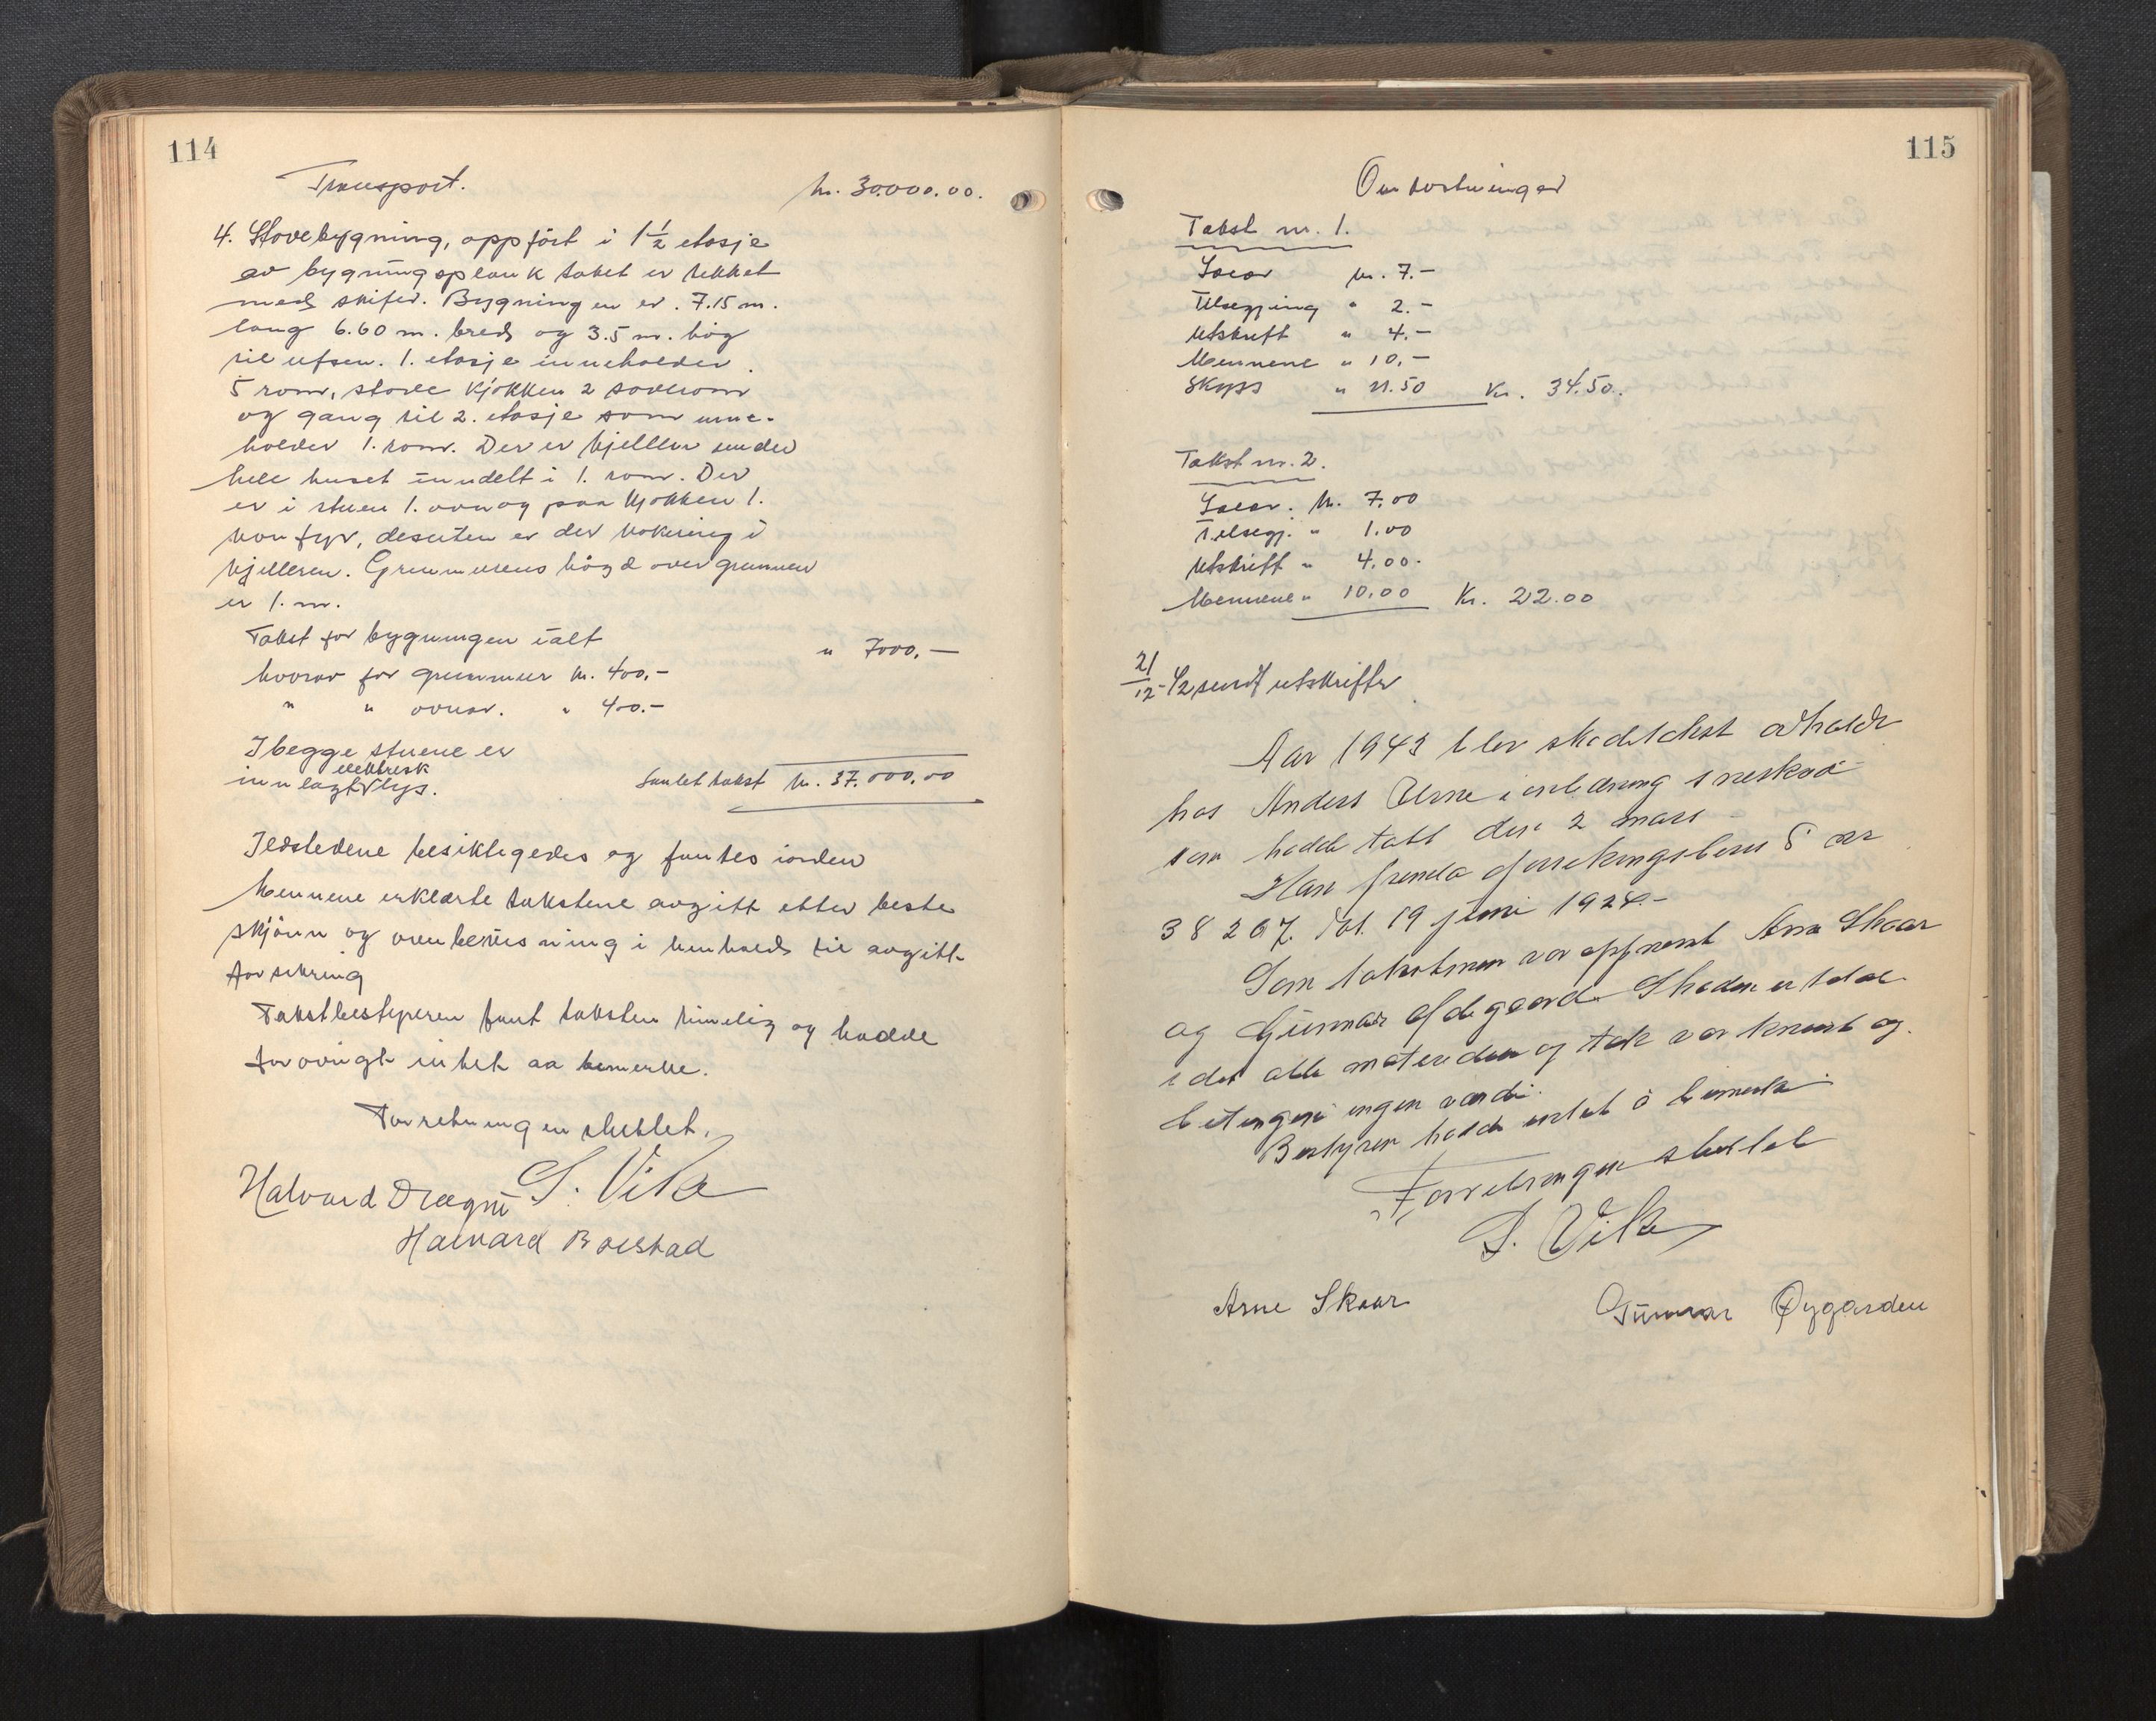 114
Transport. kr. 30.000.00.
4. Stovebygning, oppfört i 1½ etasje
av bygningsplank taket er tekket
med skifer. Bygningen er 7.15 m.
lang 6.60 m. bred og 3.5 m. høg
til ufsen. 1. etasje inneholder
5 rom, stove kjøkken 2 soverom
og gang til 2. etasje som inne-
holder 1. rom. Der er kjelller under
hele huset inndelt i 1. rom. Der
er i stuen 1. ovn og paa kjøkken 1.
komfyr, desuten er der i
kjelleren. Grunmurens høgd over grunnen
er 1. m.
Takst for bygningen ialt " 7000.—
hvorav for grunmur kr. 400.-
" " ovnar. " 400.-
I begge stuene er
elektrisk
innlagt lys. Samlet takst kr. 37.000,00
Ildstedene besiktigedes og funtes iorden
Mennene erklærte takstene avgitt etter beste
skjönn og overbevisning i henhold til avgitt
forsikring
Takstbestyreren fant taksten rimelig og hadde
forövrigt intet aa bemerke.
Forretningen sluttet.
S. Vik
Halvard
Halvard Bolstad
115
Omkostninger
Takst nr. 1.
Salar kr. 7.-
Tilsegjing " 2.-
Utskrift " 4.-
Mennene " 10.-
Skyss " 11.50 Kr. 34.50.
Takst nr. 2.
Salar. kr. 7.00
Tilsegj. " 1.00
Utskrift " 4.00.
Mennene " 10.00 Kr. 22.00
21/12- 42 sendt utskrifter
Aar 1943 blev skadetakst avholdt
hos Anders i anledning sneskade
som hadde tatt den 2 mars -
Han fremla forsikringsbevis § nr
38267. dat. 19 juni 1924.-
Som takstmenn var oppnevnt Arne Skaar
og Gunnar Skaden er total
idet alle materialer og tak var knust og
betinger ingen værdi.
Bestyrer hadde intet å bemerke.
Forretningen sluttet
S. Vik
Arne Skaar Gunnar Øygarden